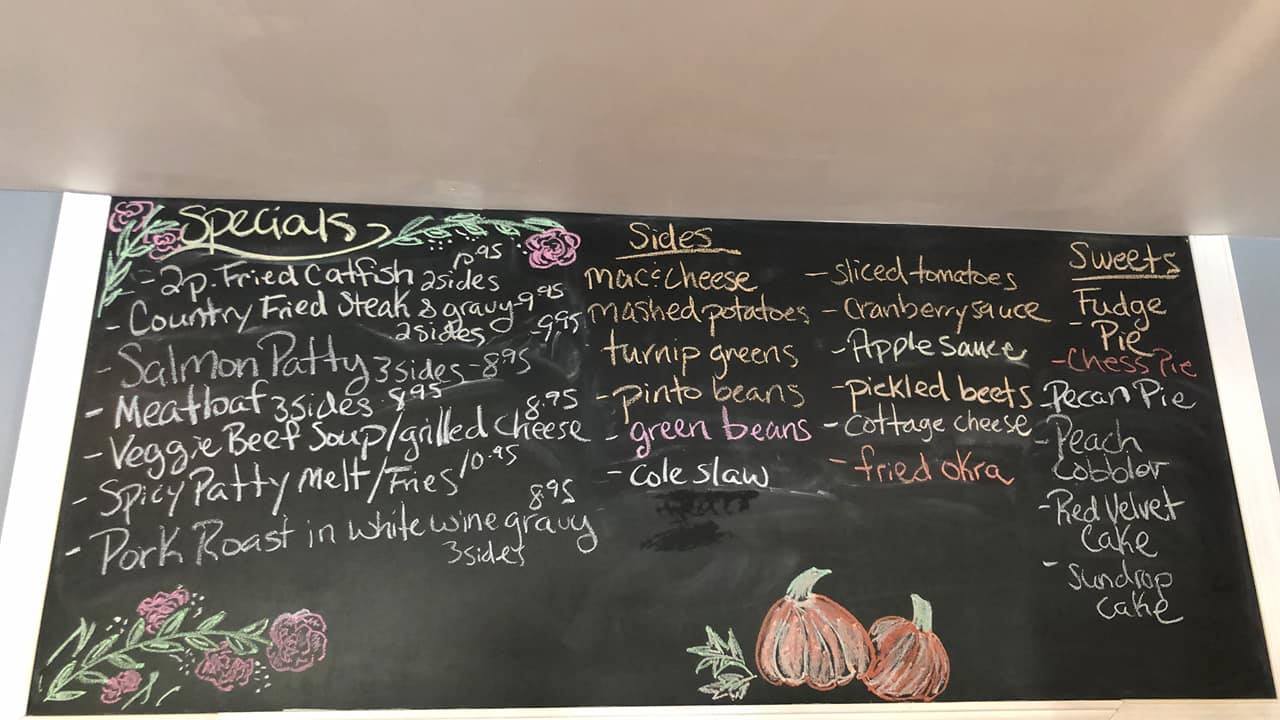 Specials
- 2p. Fried Catfish 2sides
- Country Fried Steak & gravy-9.95
2sides -9.95
- Salmon Patty 3sides-8.95
- Meatloaf 3sides 8.95
- Veggie Beef Soup/grilled cheese 8.95
- Spicy Patty Melt/Fries 10.95
- Pork Roast in white wine gravy 8.95
3sides
Sides
mac & cheese
mashed potatoes
turnip greens
- pinto beans
- green beans
- cole slaw
- sliced tomatoes
- Cranberry sauce
- Apple sauce
- pickled beets
- cottage cheese
- fried okra
Sweets
Fudge
- Pie
- Chess Pie
- Pecan Pie
- Peach
Cobbler
- Red Velvet
Cake
- Sundrop
Cake